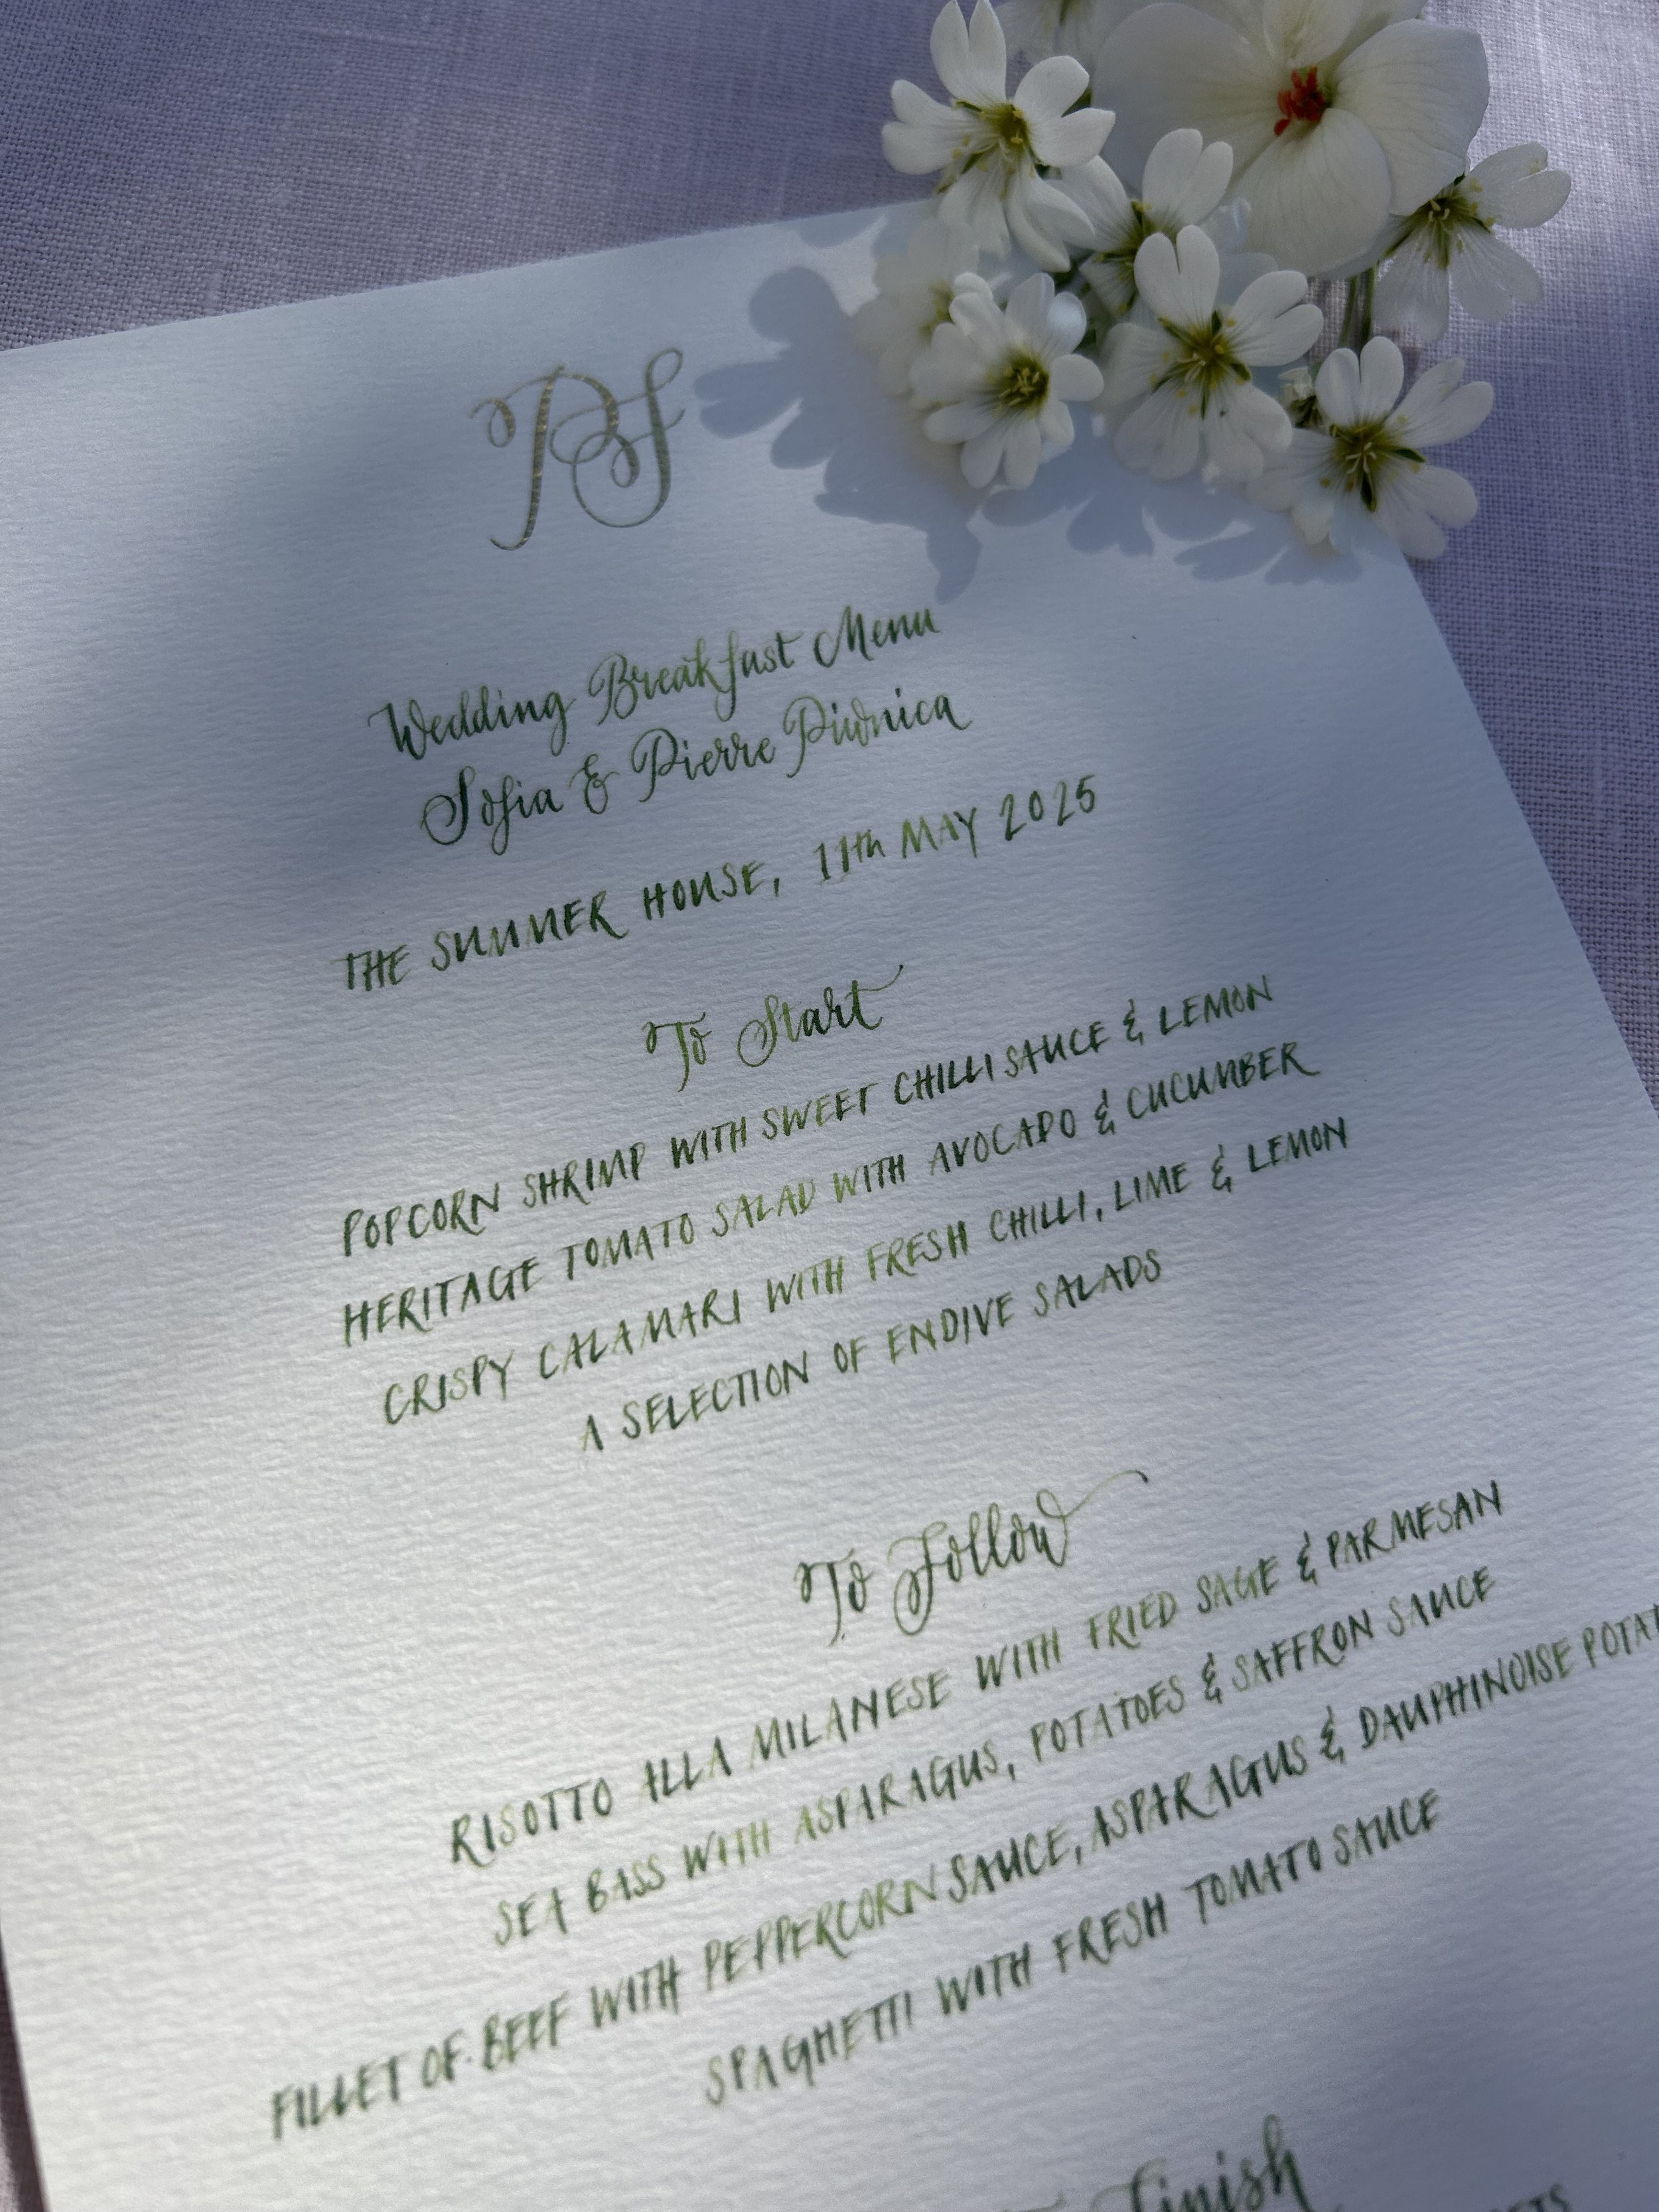 PS
Wedding Breakfast Menu
Sofia & Pierre Piwnica
THE SUMMER HOUSE, 11th MAY 2025
To Start
POPCORN SHRIMP WITH SWEET CHILLI SAUCE & LEMON
HERITAGE TOMATO SALAD WITH AVOCADO & CUCUMBER
CRISPY CALAMARI WITH FRESH CHILLI, LIME & LEMON
A SELECTION OF ENDIVE SALADS
To Follow
RISOTTO ALLA MILANESE WITH FRIED SAGE & PARMESAN
SEA BASS WITH ASPARAGUS, POTATOES & SAFFRON SAUCE
FILLET OF BEEF WITH PEPPERCORN SAUCE, ASPARAGUS & DAUPHINOISE
SPAGHETTI WITH FRESH TOMATO SAUCE
Finish